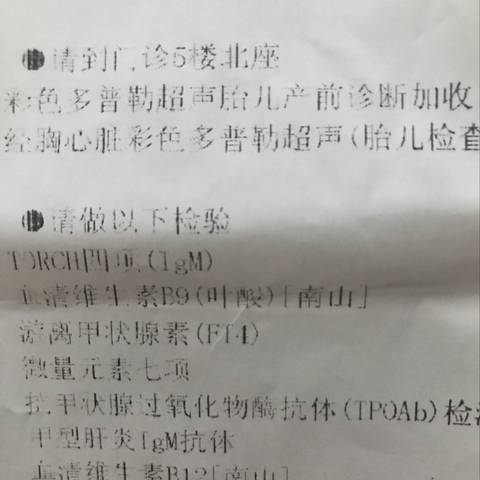 ●请到门诊5楼北座
彩色多普勒超声胎儿产前诊断加收
经胸心脏彩色多普勒超声(胎儿检查
●请做以下检验
TORCH四项(IgM)
血清维生素B9(叶酸)[南山]
游离甲状腺素(FT4)
微量元素七项
抗甲状腺过氧化物酶抗体(TPOAb)检
甲型肝炎IgM抗体
血清维生素B12[南山]